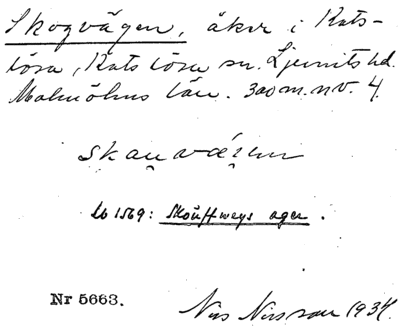 Skogvägen, åker i Kats-
lösa, Katslösa sn. Ljunits hd.
Malmöhus län. 300 m. n.v. 4.
Lb 1569: Skouffweys ager.
Nr 5663.
Nils Nilsson 1934.